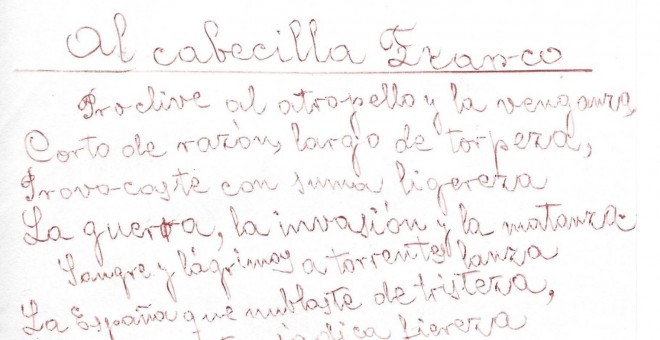 Al cabecilla Franco
Proclive al atropello y la venganza,
Corto de razón, largo de torpeza,
Provocaste con suma ligereza
La guerra, la invasión y la matanza.
Sangre y lágrimas a torrentes lanza
La España que nublaste de tristeza,
fiereza